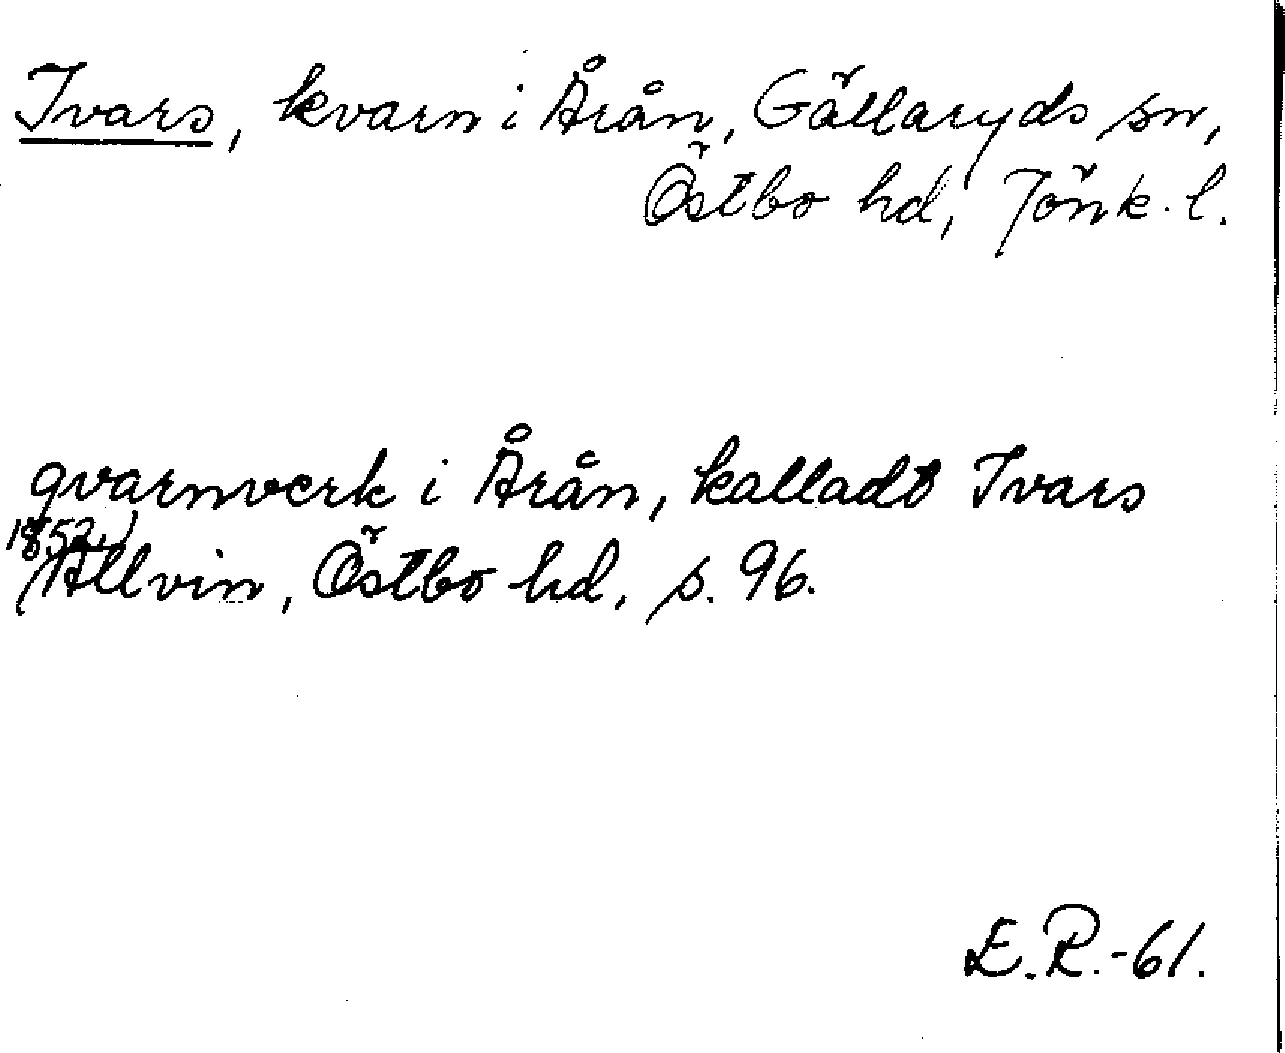 Ivars, kvarn i Årån, Gällaryds sn,
Östbo hd, Jönk. l.
qvarnverk i Årån, kalladt Ivars
1852.)
Allvin, Östbo hd, s. 96.
E.R.-61.